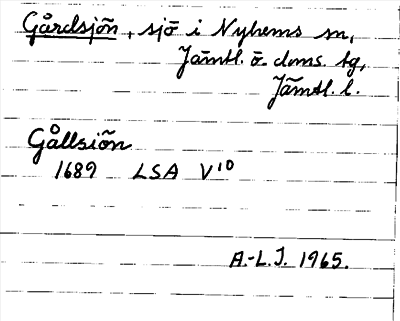 Gårdsjön, sjö i Nyhems sn,
Jämtl. ö. doms. tg,
Jämtl. l.
Gållsiön
1689 LSA V10
A.-L.J. 1965.